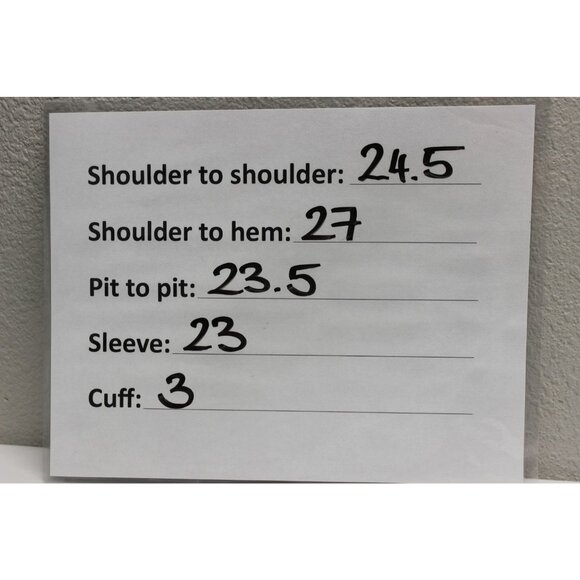 Shoulder to shoulder: 24.5
Shoulder to hem: 27
Pit to pit: 23.5
Sleeve: 23
Cuff: 3